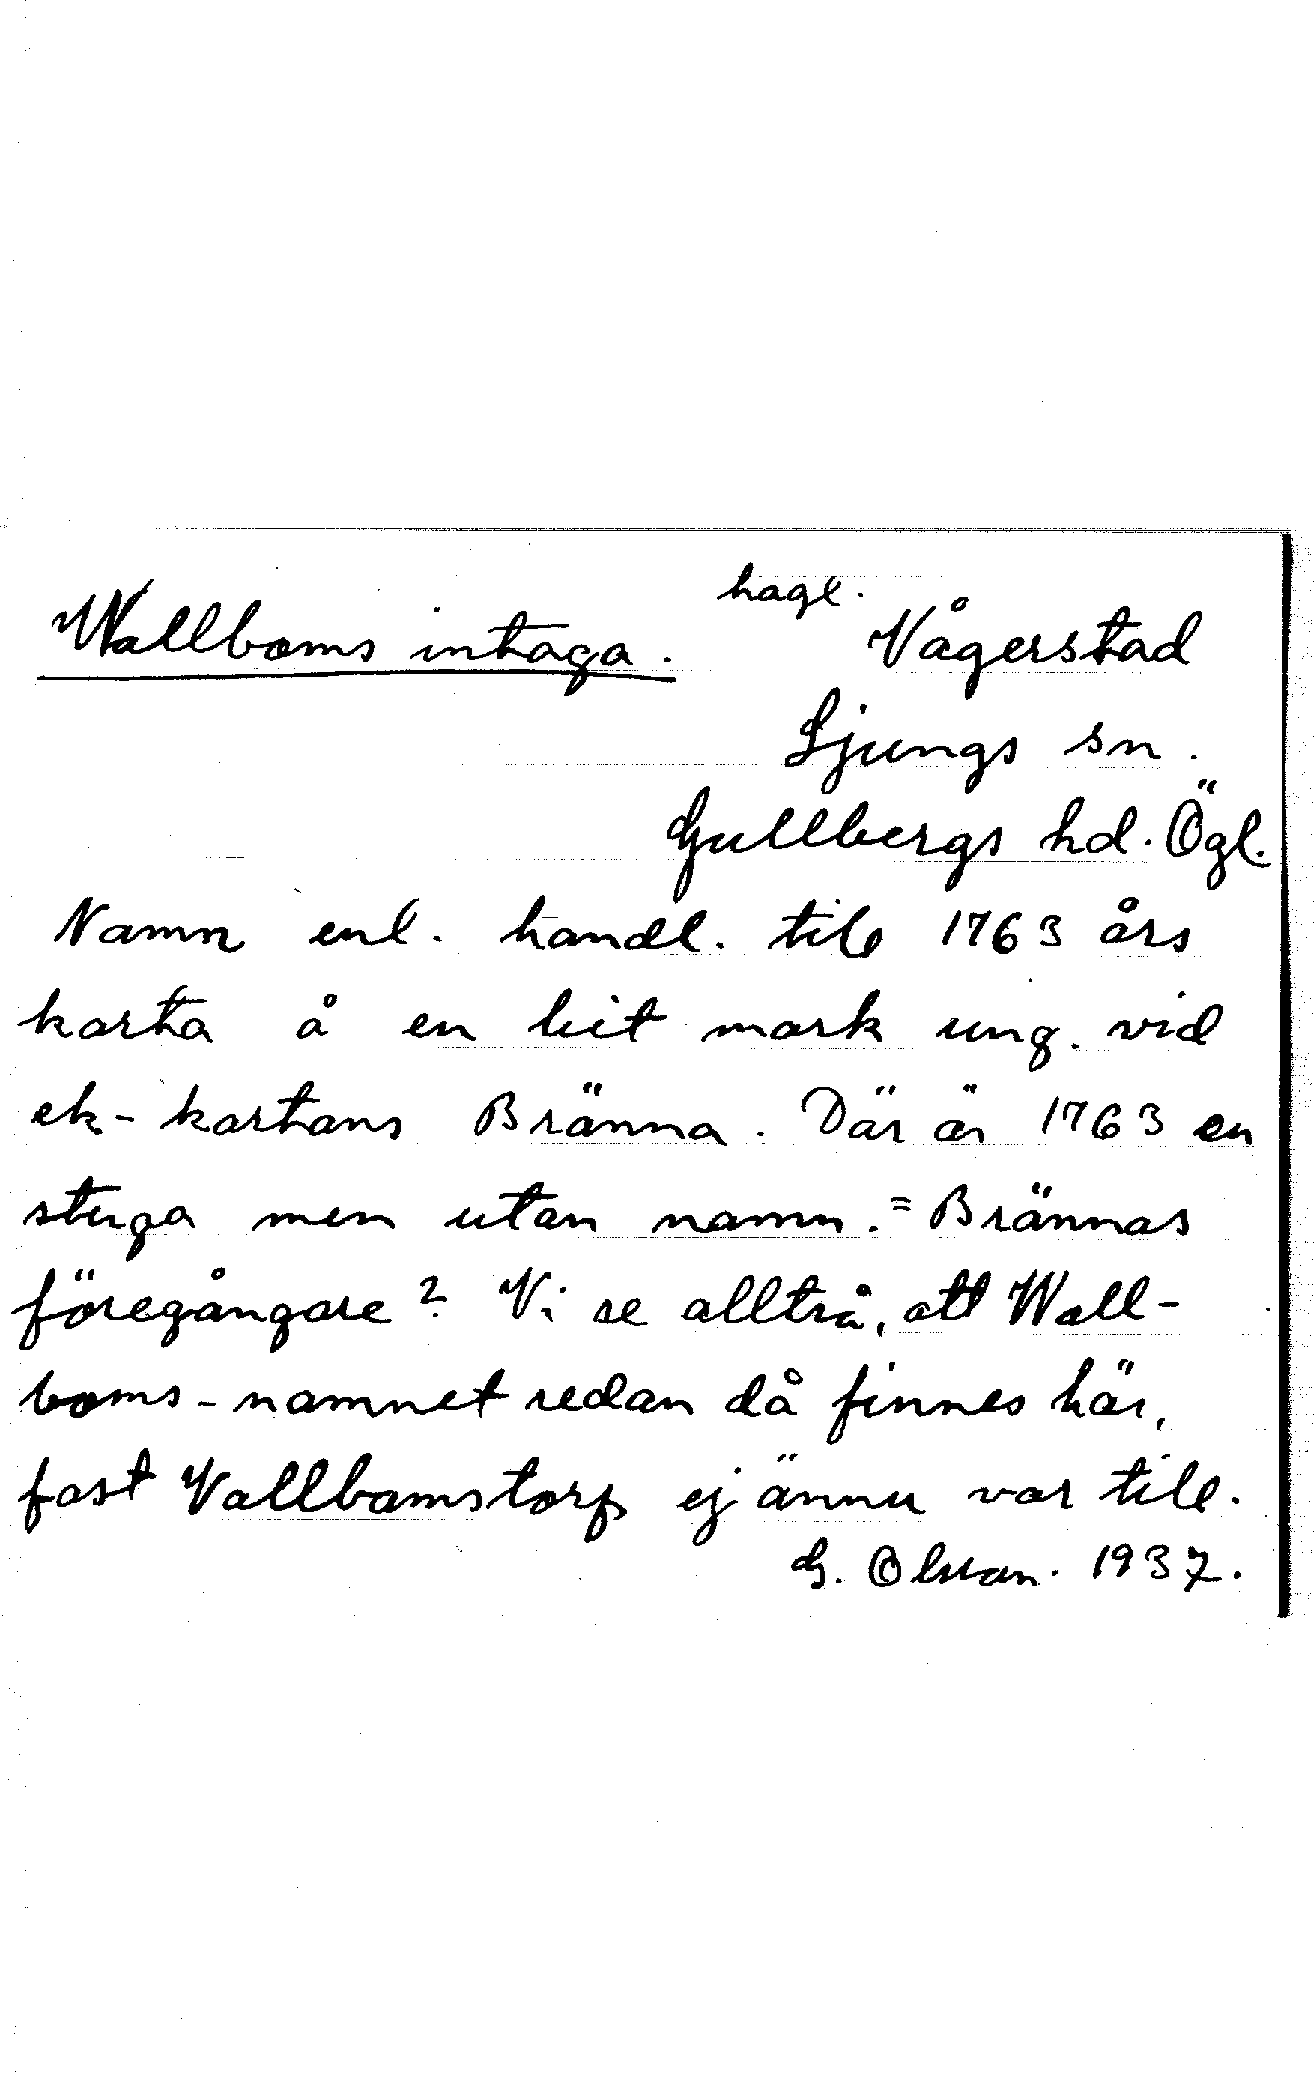 hagl.
Wallboms intaga. Vågerstad
Ljungs sn.
Gullbergs hd. Ögl.
Namn enl. handl. till 1763 års
karta å en bit mark ung. vid
ek-kartans Bränna. Där är 1763 en
stuga men utan namn. = Brännas
föregångare? Vi se alltså, att Wall-
boms-namnet redan då finnes här,
fast Vallbomstorp ej ännu var till.
G. Olsson. 1937.